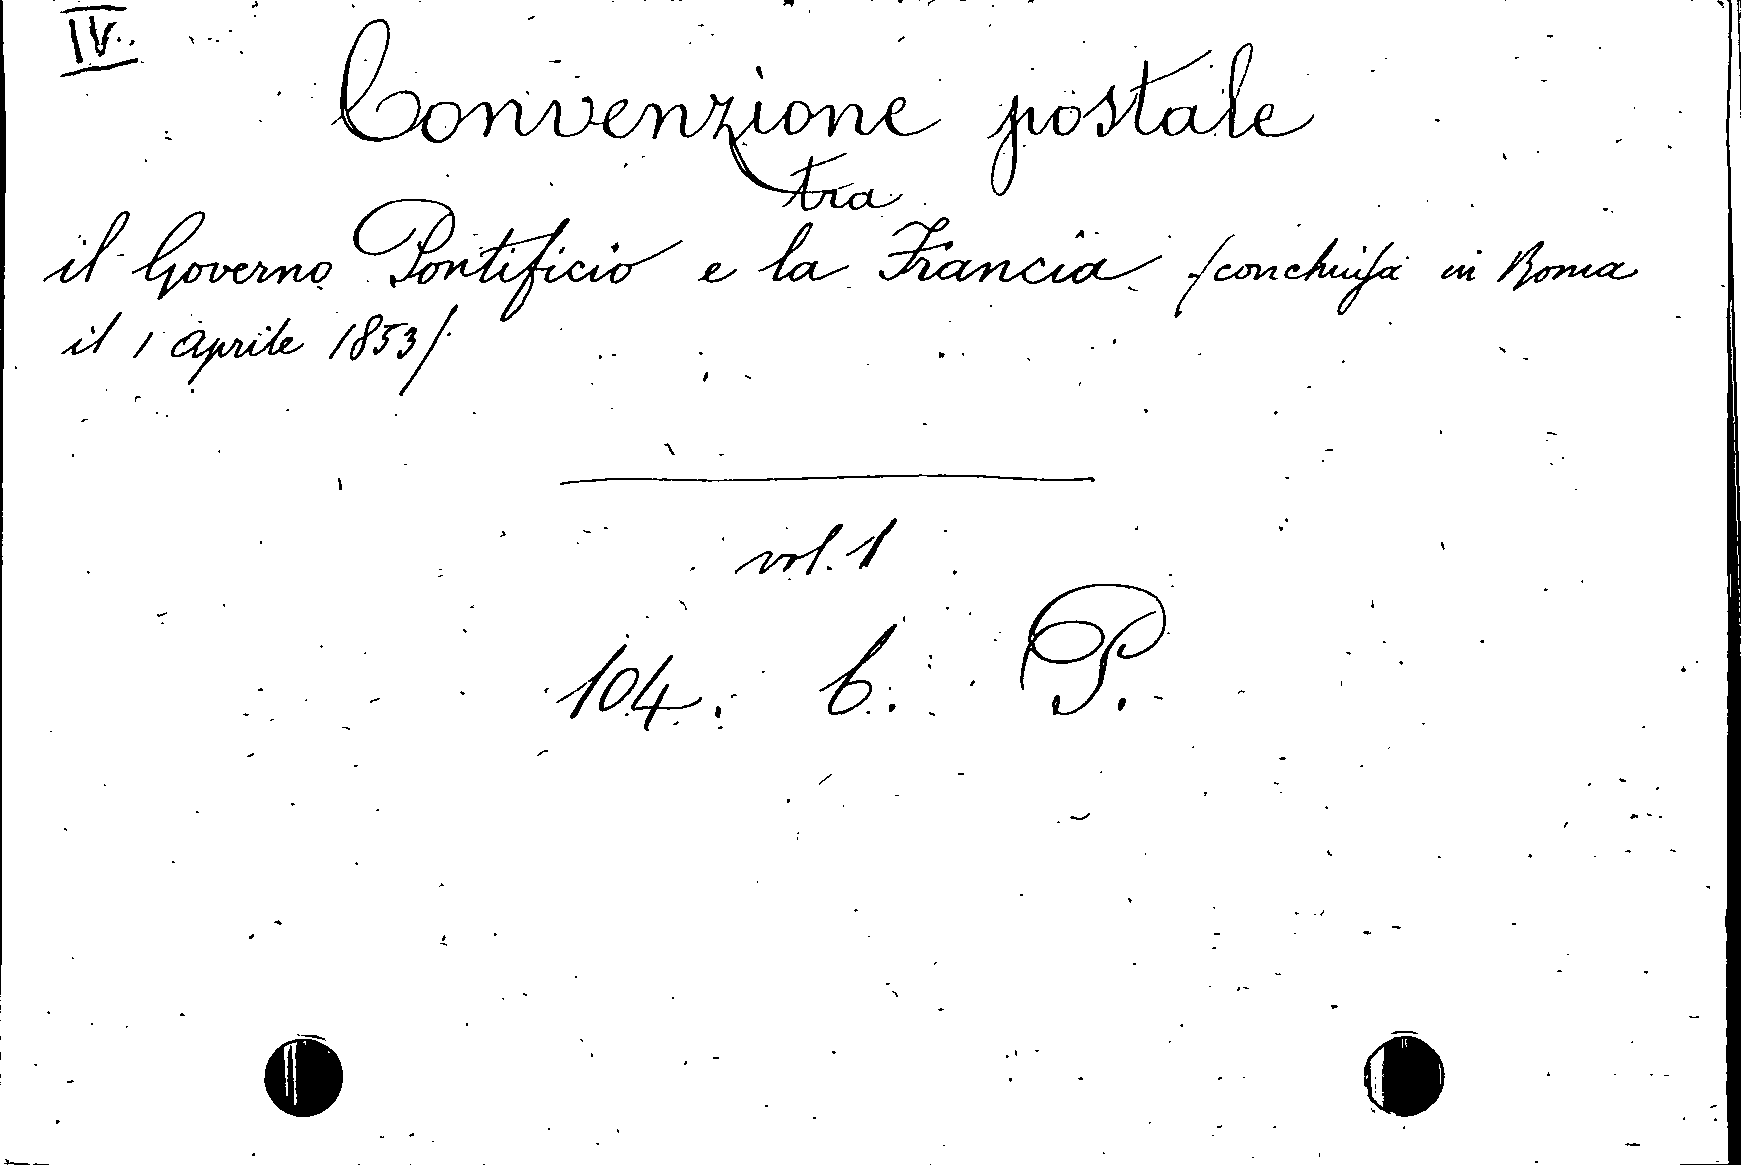 IV.
Convenzione postale
tra
il Governo Pontificio e la Francia /conchiusa in Roma
il 1 Aprile 1853/.
vol. 1
104. b. P.